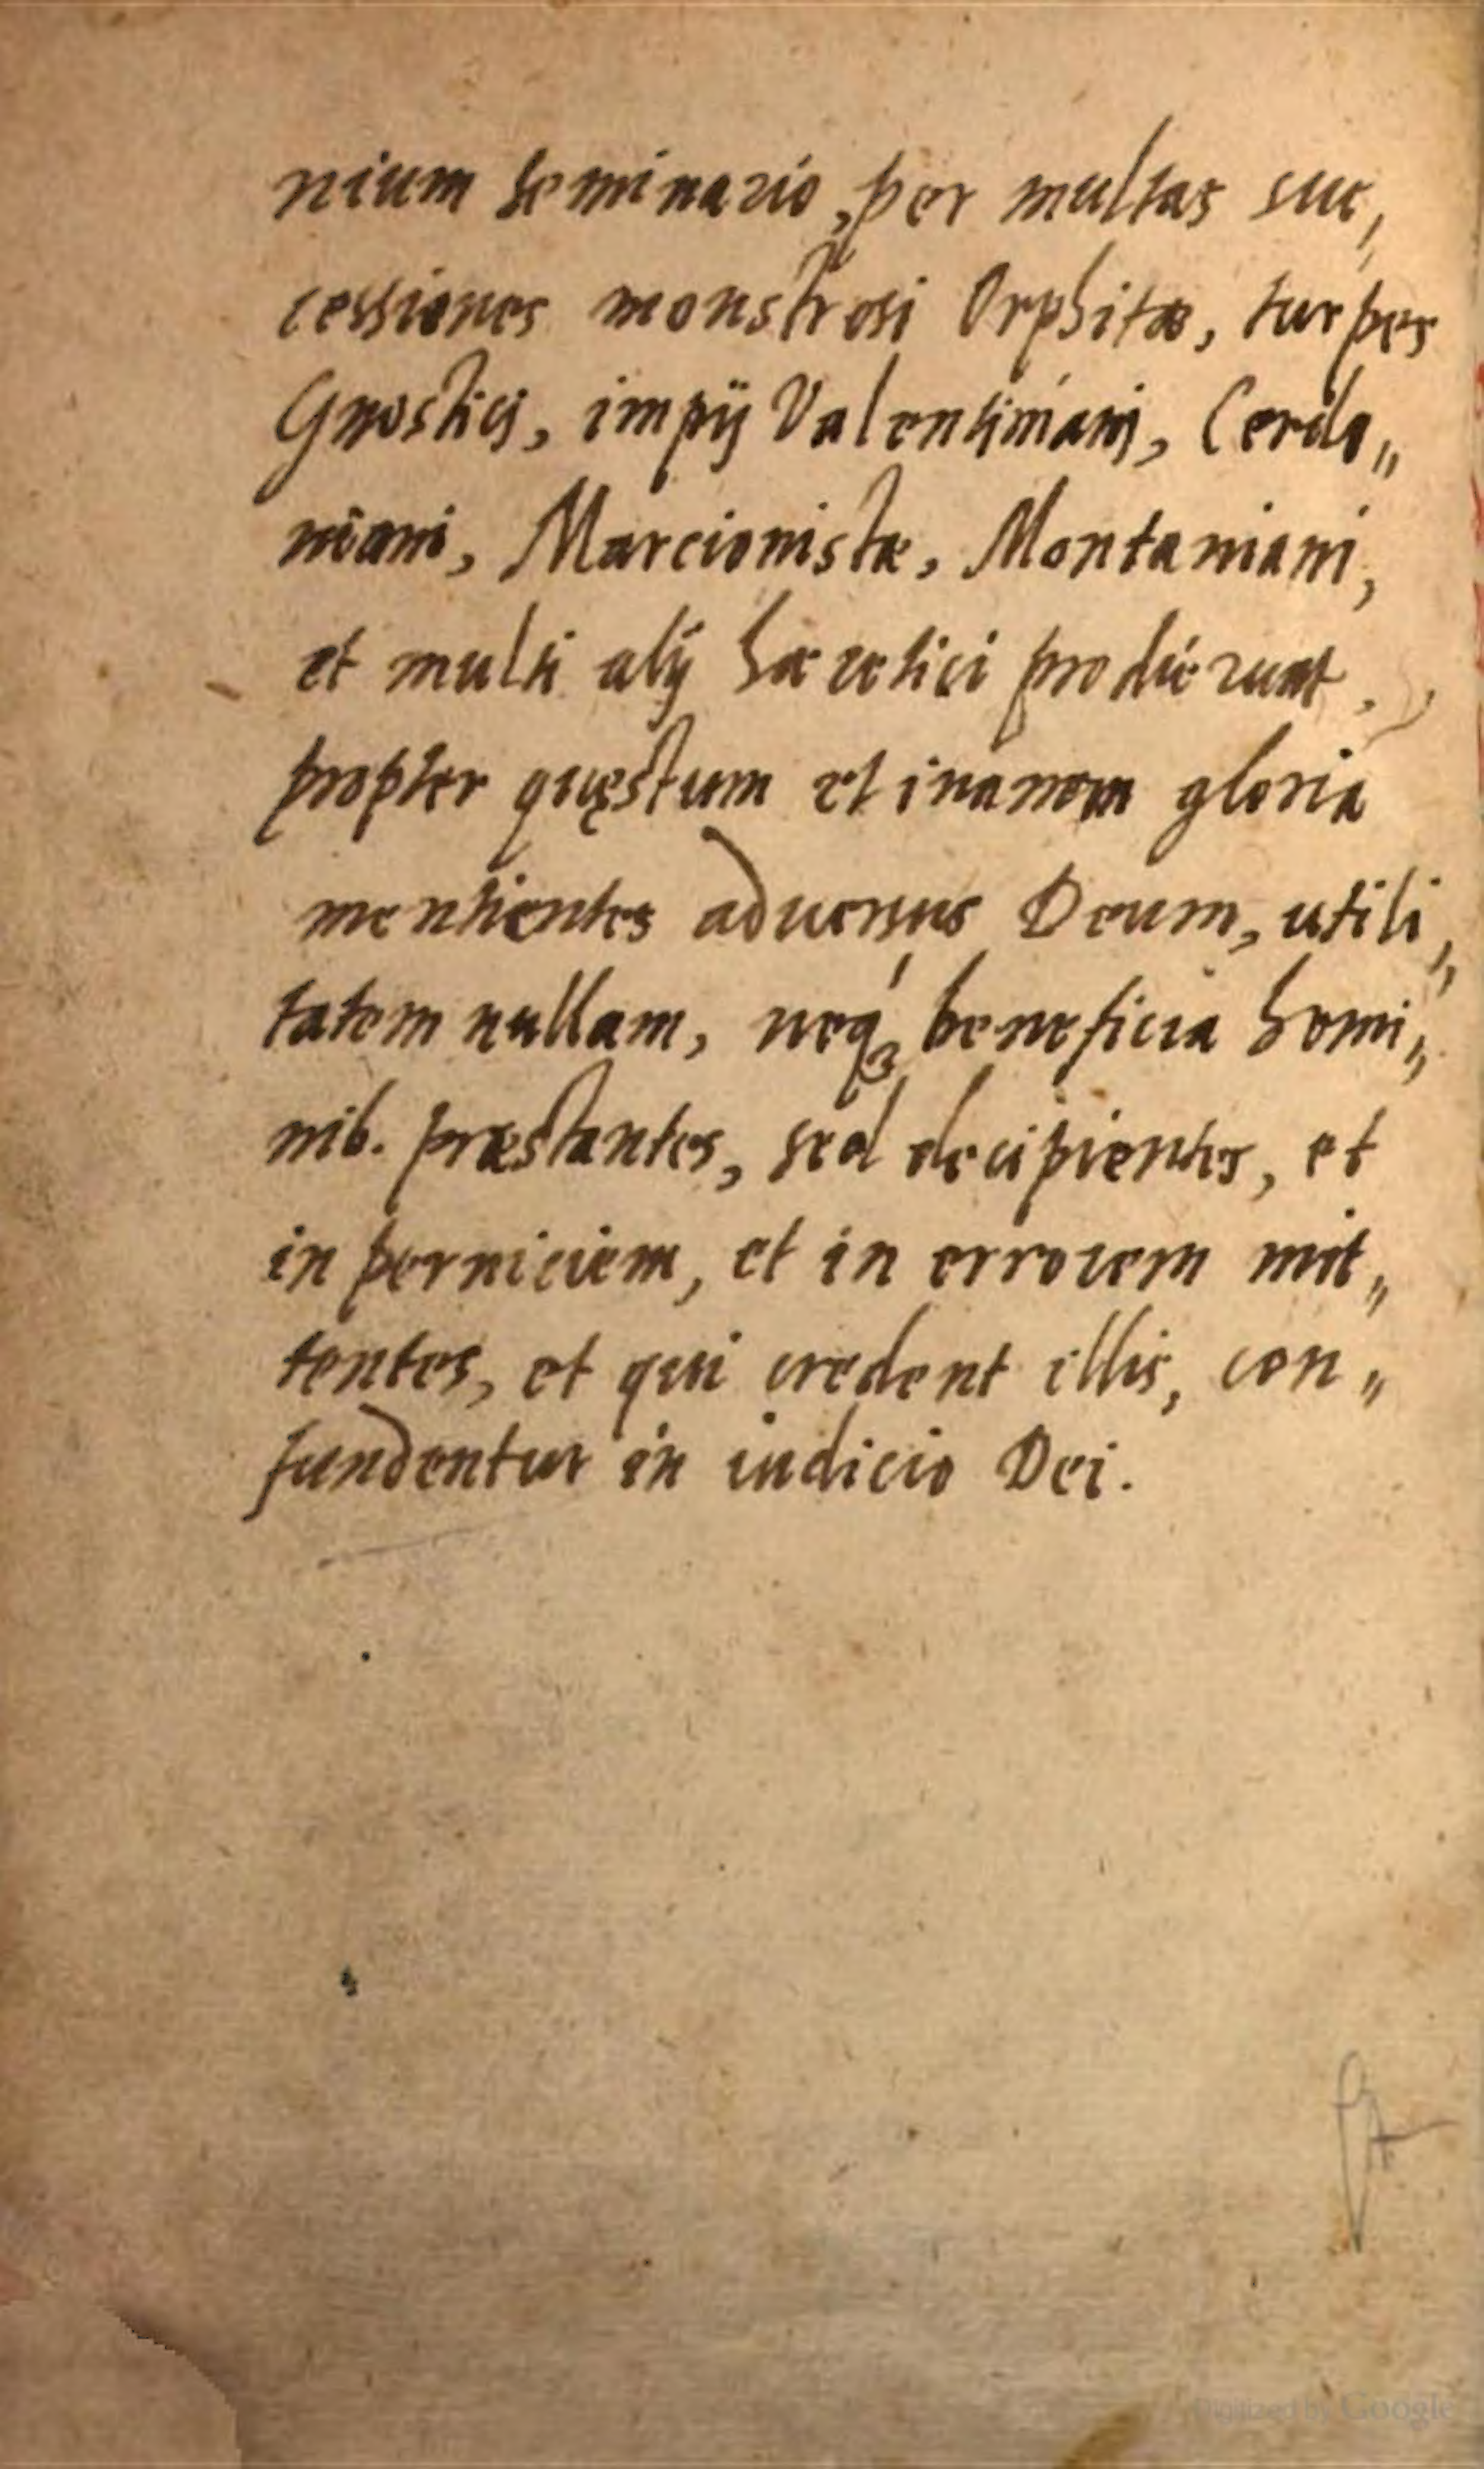 nium seminario, per multas suc,
cessiones monstrosi Orphitæ, turpes
Gnosticij, impij Valentiniani, Cerdo„
niani, Marcionistæ, Montaniani,
et multi alij hæretici prodierunt,
propter quęstum et inanem gloria
mentientes aduersus Deum, utili„
tatem nullam, neq; beneficia homi„
nib. præstantes, sed decipientes, et
in perniciem, et in errorem mit„
tentes, et qui credent illis, con„
fundentur in iudicio Dei.
Digitized by Google